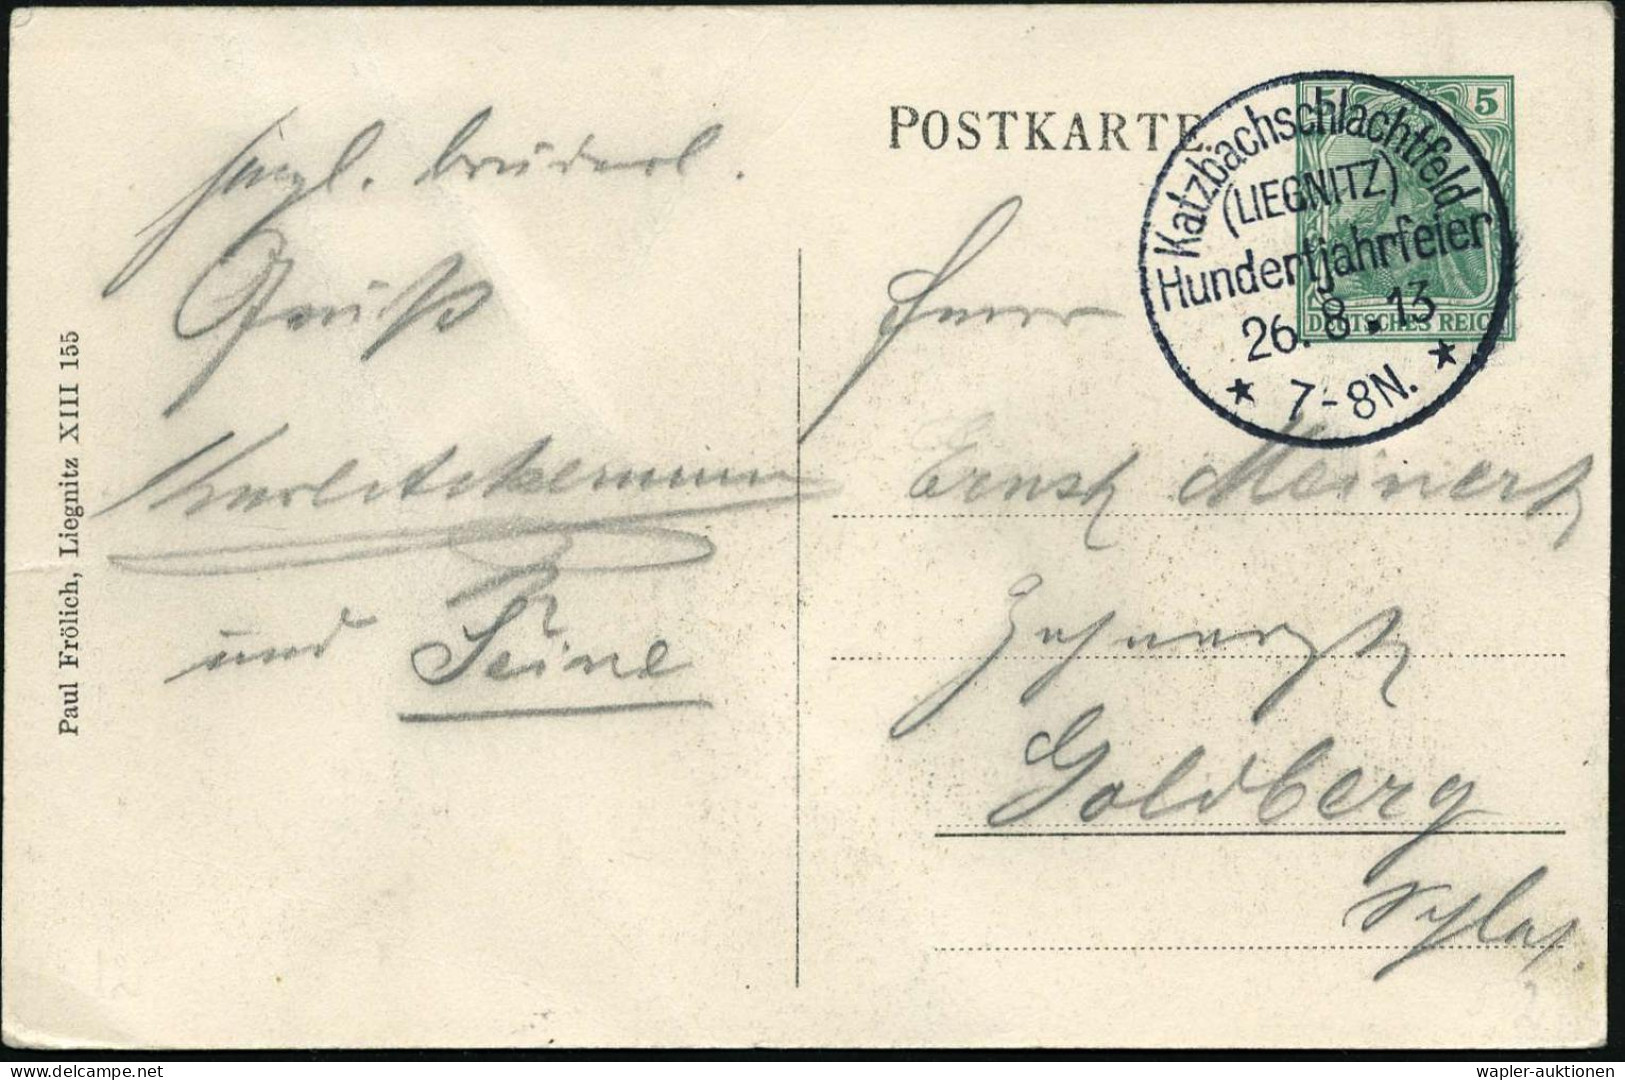 POSTKARTE
5
DEUTSCHES REICH
Katzbachschlachtfeld
(LIEGNITZ)
Hundertjahrfeier
26. 8. 13
★ 7-8N. ★
Gruß
und Seine
Paul Frölich, Liegnitz XIII 155
Herrn
Ernst Meinert
Goldberg
Schles.
delcampe.net
wapler-auktionen